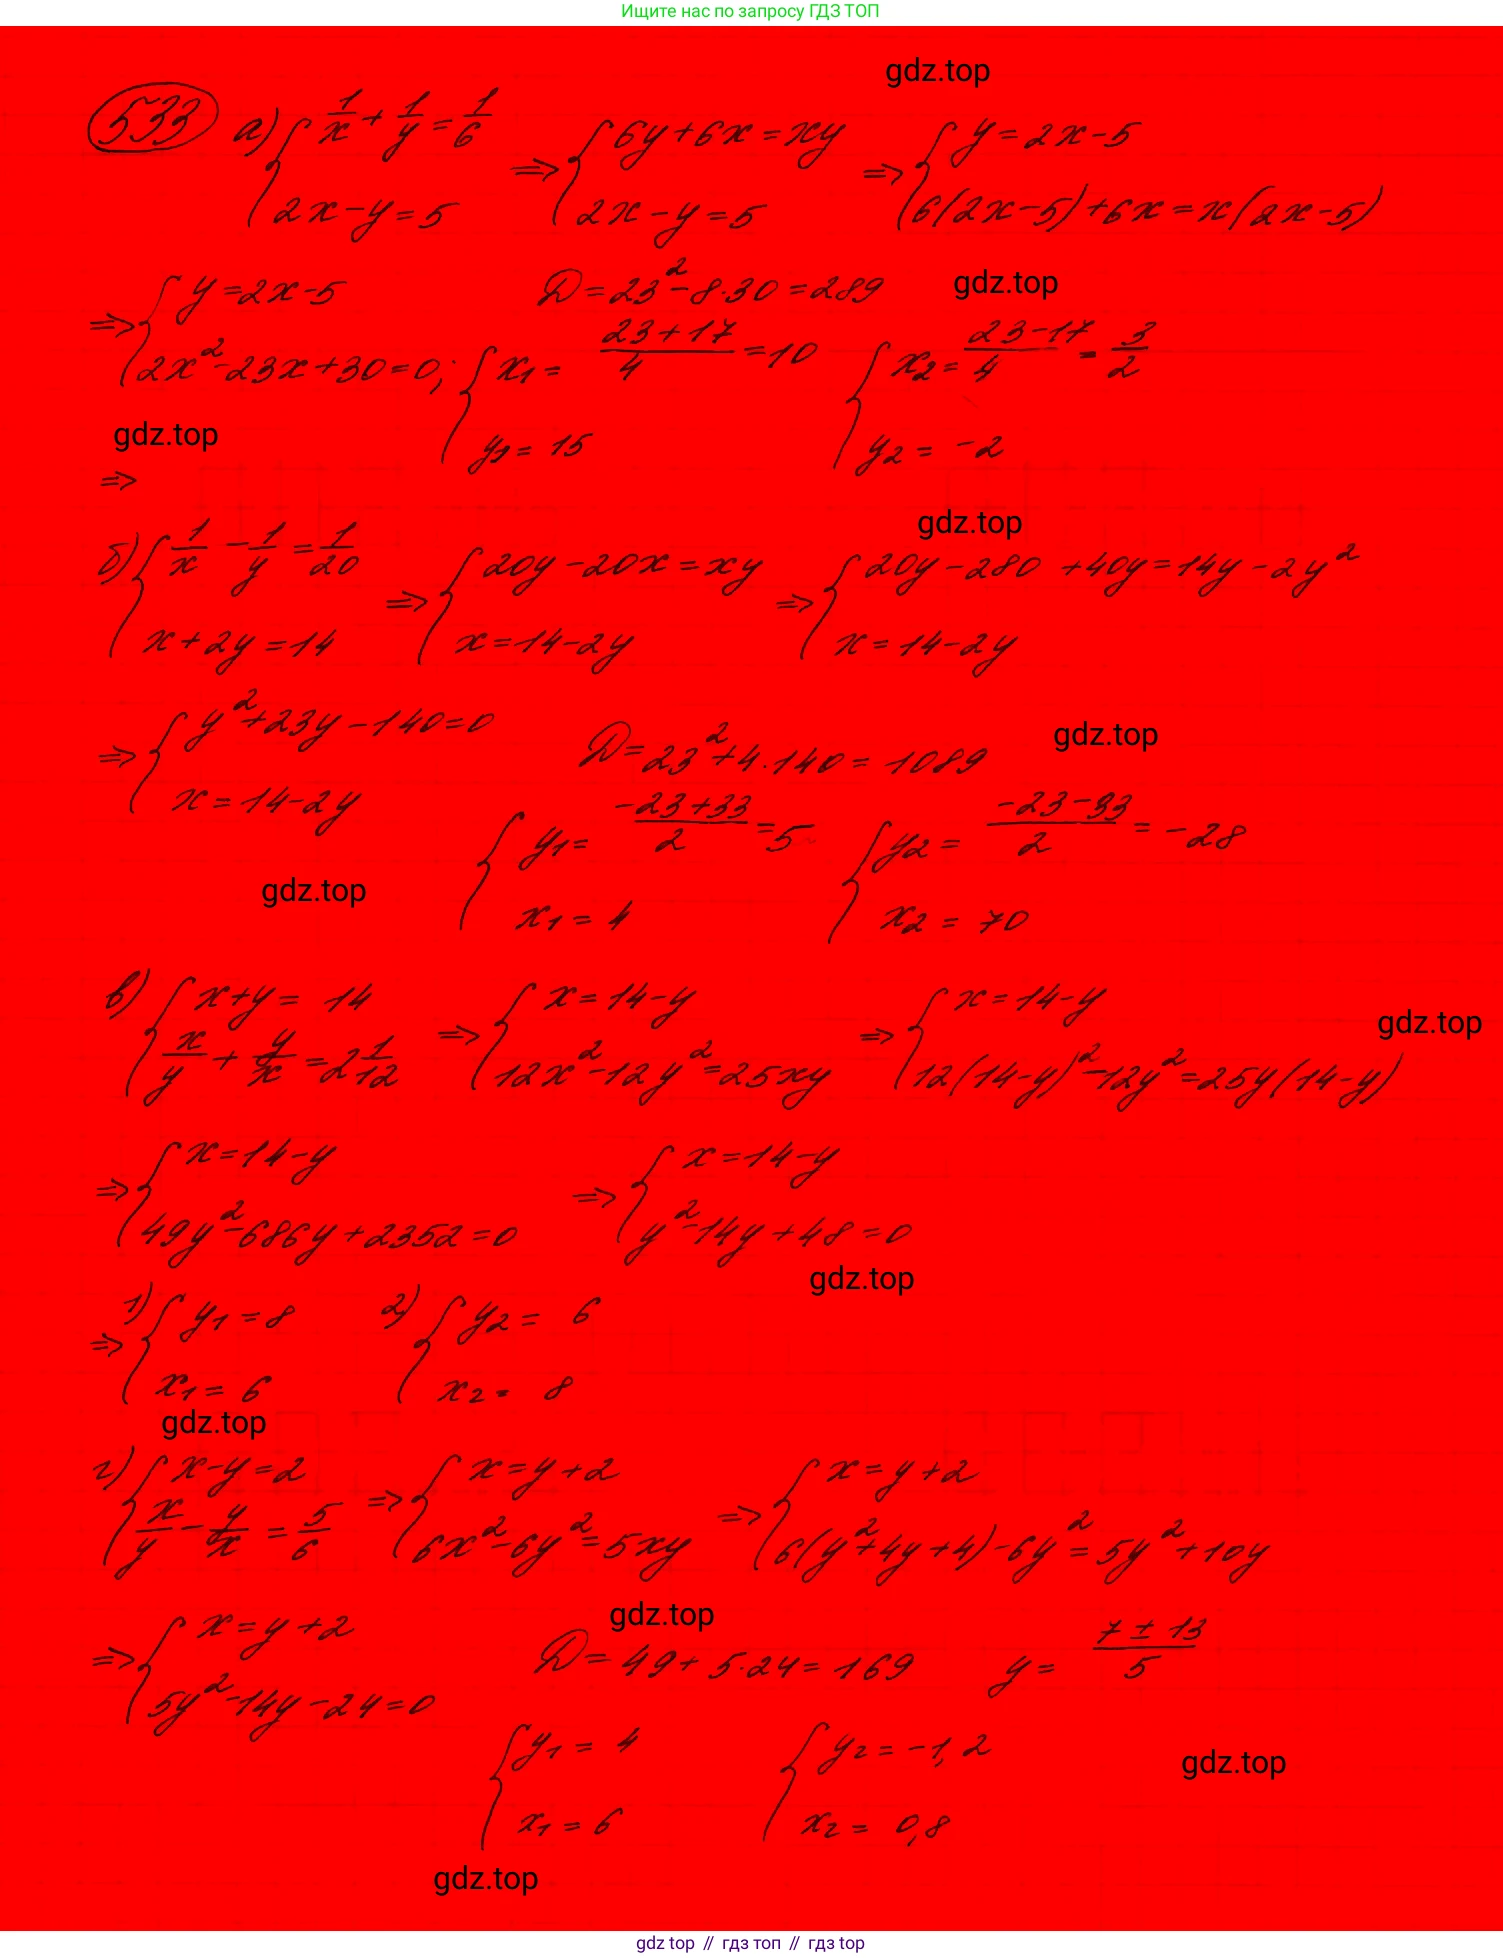 Ищите нас по запросу ГДЗ ТОП
gdz.top
533 а) { 1/x + 1/y = 1/6 ; 2x - y = 5 => { 6y + 6x = xy ; 2x - y = 5 => { y = 2x - 5 ; 6(2x - 5) + 6x = x(2x - 5)
=> { y = 2x - 5 ; 2x² - 23x + 30 = 0; D = 23² - 8·30 = 289
gdz.top
{ x₁ = (23 + 17)/4 = 10 ; y₁ = 15 { x₂ = (23 - 17)/4 = 3/2 ; y₂ = -2
gdz.top
=>
gdz.top
б) { 1/x - 1/y = 1/20 ; x + 2y = 14 => { 20y - 20x = xy ; x = 14 - 2y => { 20y - 280 + 40y = 14y - 2y² ; x = 14 - 2y
=> { y² + 23y - 140 = 0 ; x = 14 - 2y D = 23² + 4·140 = 1089
gdz.top
{ y₁ = (-23 + 33)/2 = 5 ; x₁ = 4 { y₂ = (-23 - 33)/2 = -28 ; x₂ = 70
gdz.top
в) { x + y = 14 ; x/y + y/x = 2 1/12 => { x = 14 - y ; 12x² - 12y² = 25xy => { x = 14 - y ; 12(14 - y)² - 12y² = 25y(14 - y)
gdz.top
=> { x = 14 - y ; 49y² - 686y + 2352 = 0 => { x = 14 - y ; y² - 14y + 48 = 0
gdz.top
=> 1) { y₁ = 8 ; x₁ = 6 2) { y₂ = 6 ; x₂ = 8
gdz.top
г) { x - y = 2 ; x/y - y/x = 5/6 => { x = y + 2 ; 6x² - 6y² = 5xy => { x = y + 2 ; 6(y² + 4y + 4) - 6y² = 5y² + 10y
gdz.top
=> { x = y + 2 ; 5y² - 14y - 24 = 0 D = 49 + 5·24 = 169 y = (7 ± 13)/5
{ y₁ = 4 ; x₁ = 6 { y₂ = -1,2 ; x₂ = 0,8
gdz.top
gdz.top
gdz top // гдз топ // гдз top